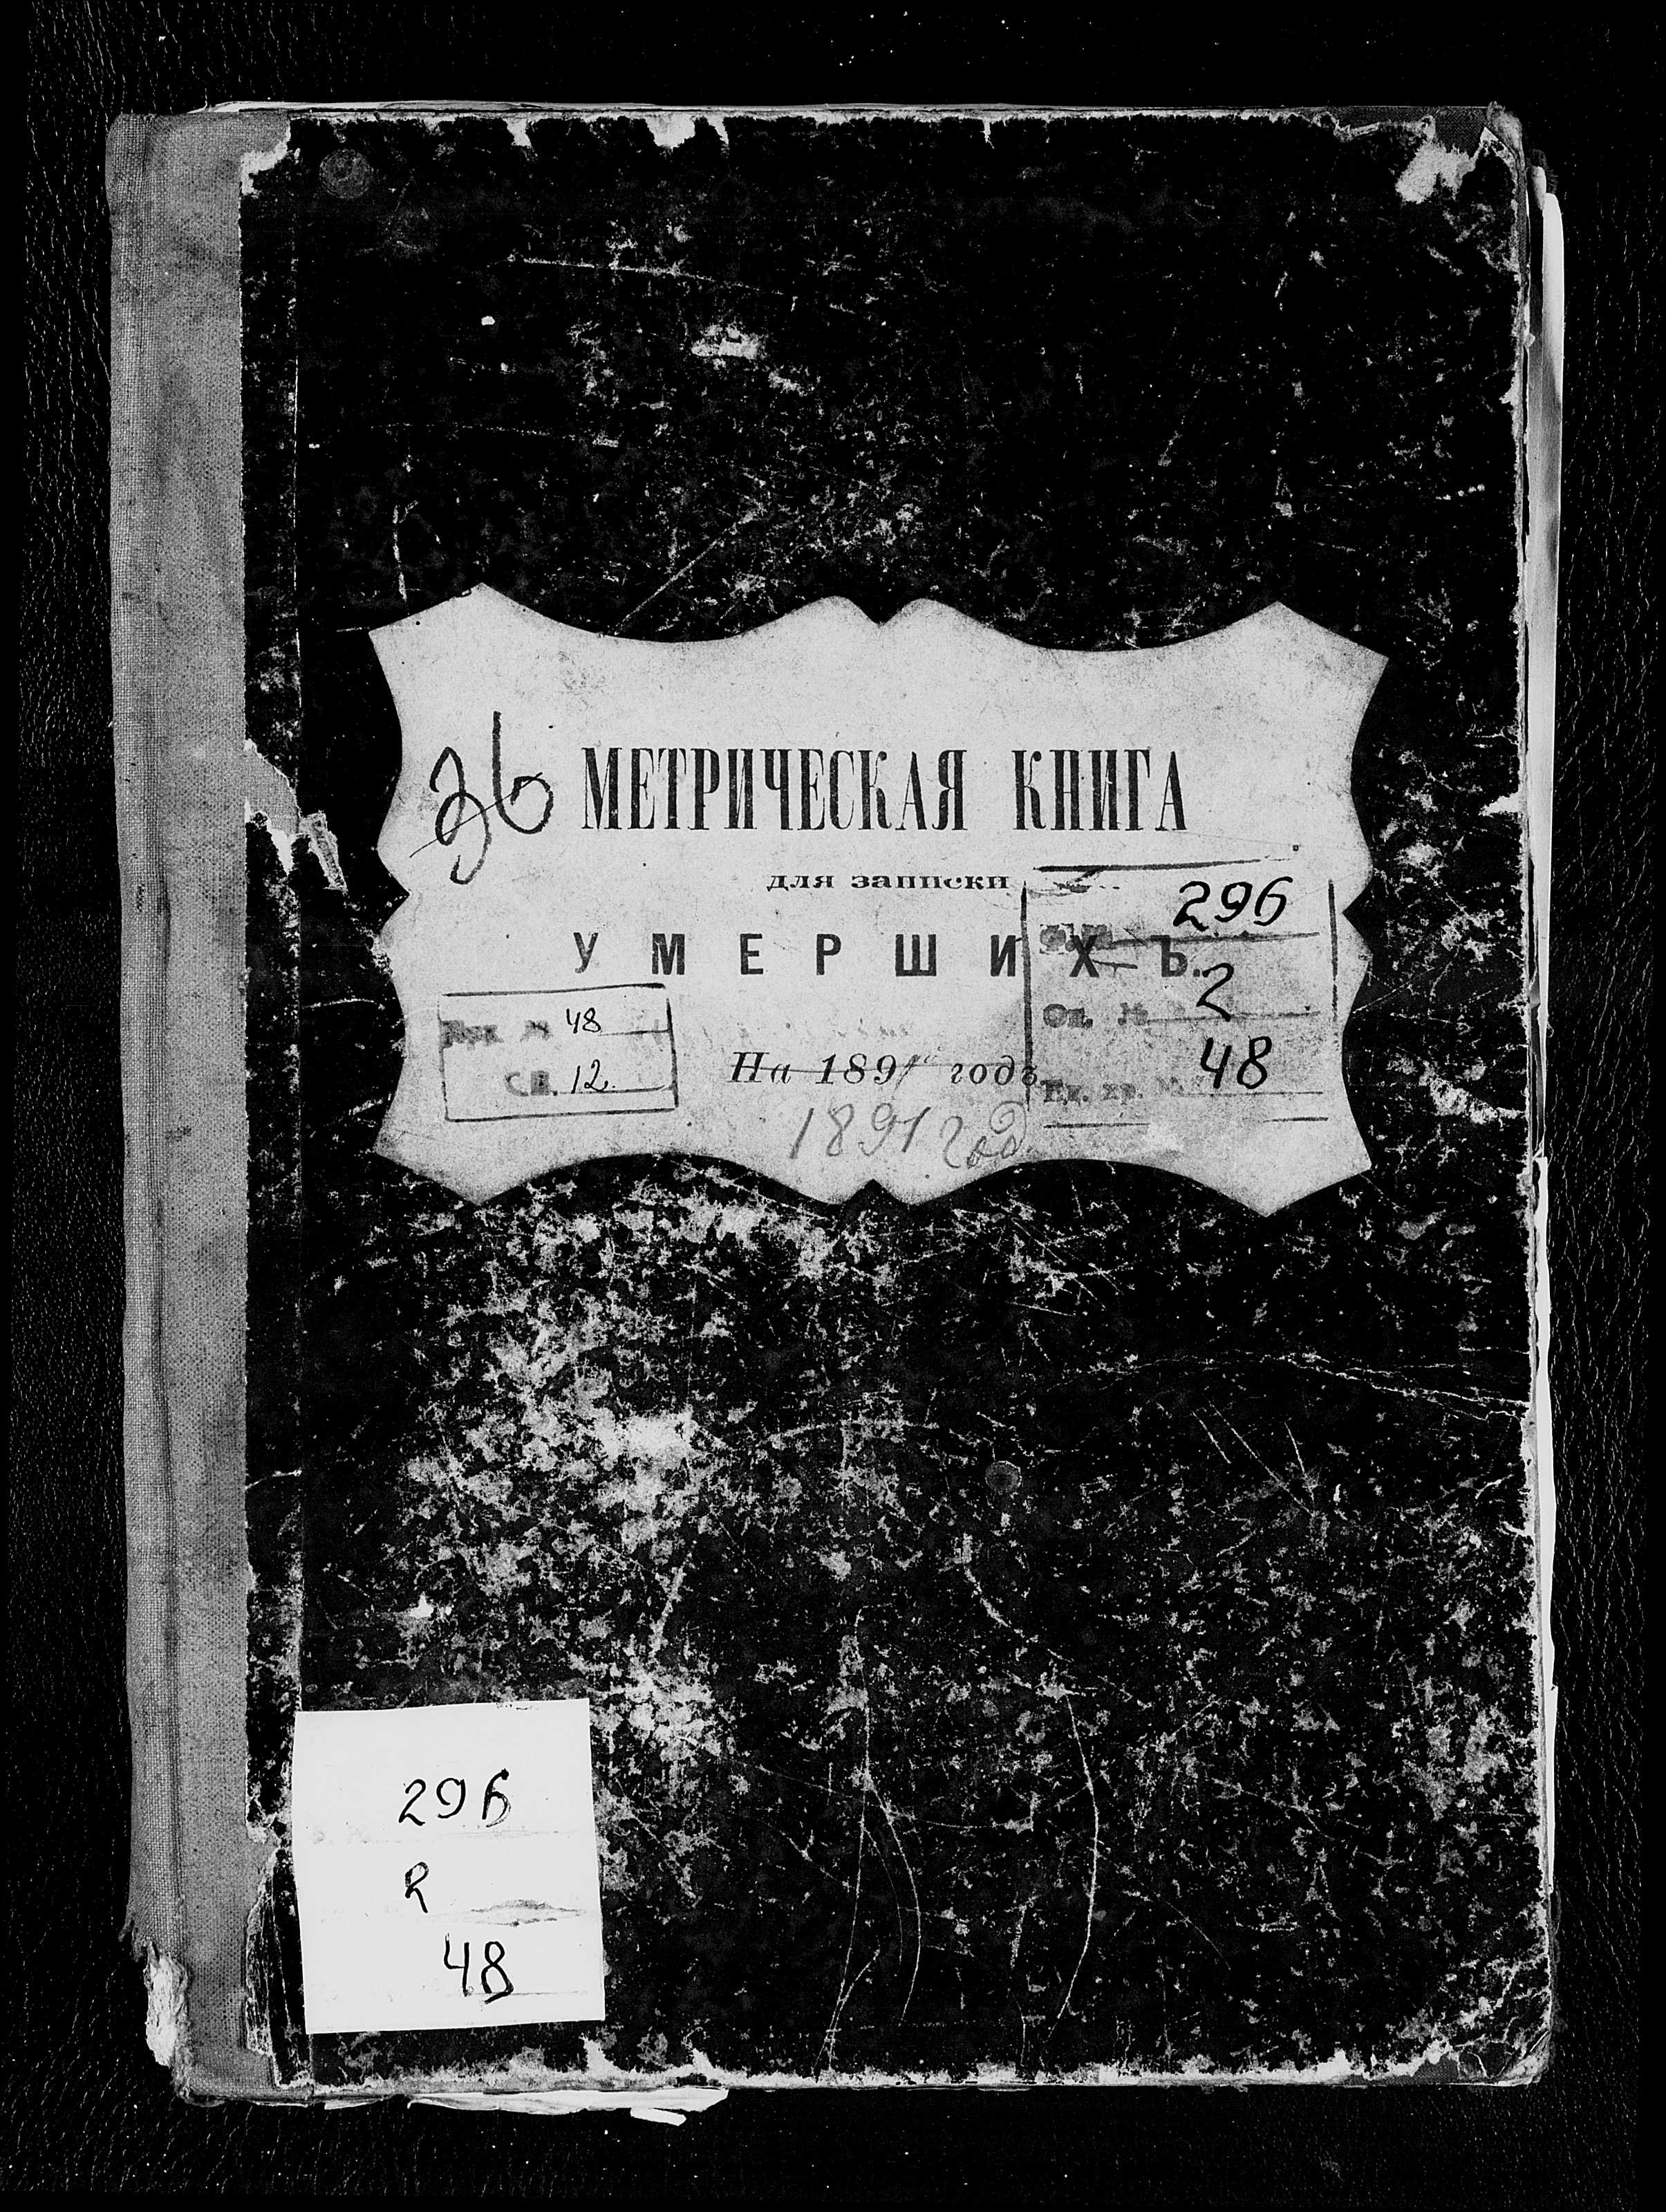 36 МЕТРИЧЕСКАЯ КНИГА
для записки
УМЕРШИХЪ.
296
Оп. № 2
Ед. хр. № 48
№ 48
СВ. 12
На 1891 годъ
1891 год
296
2
48